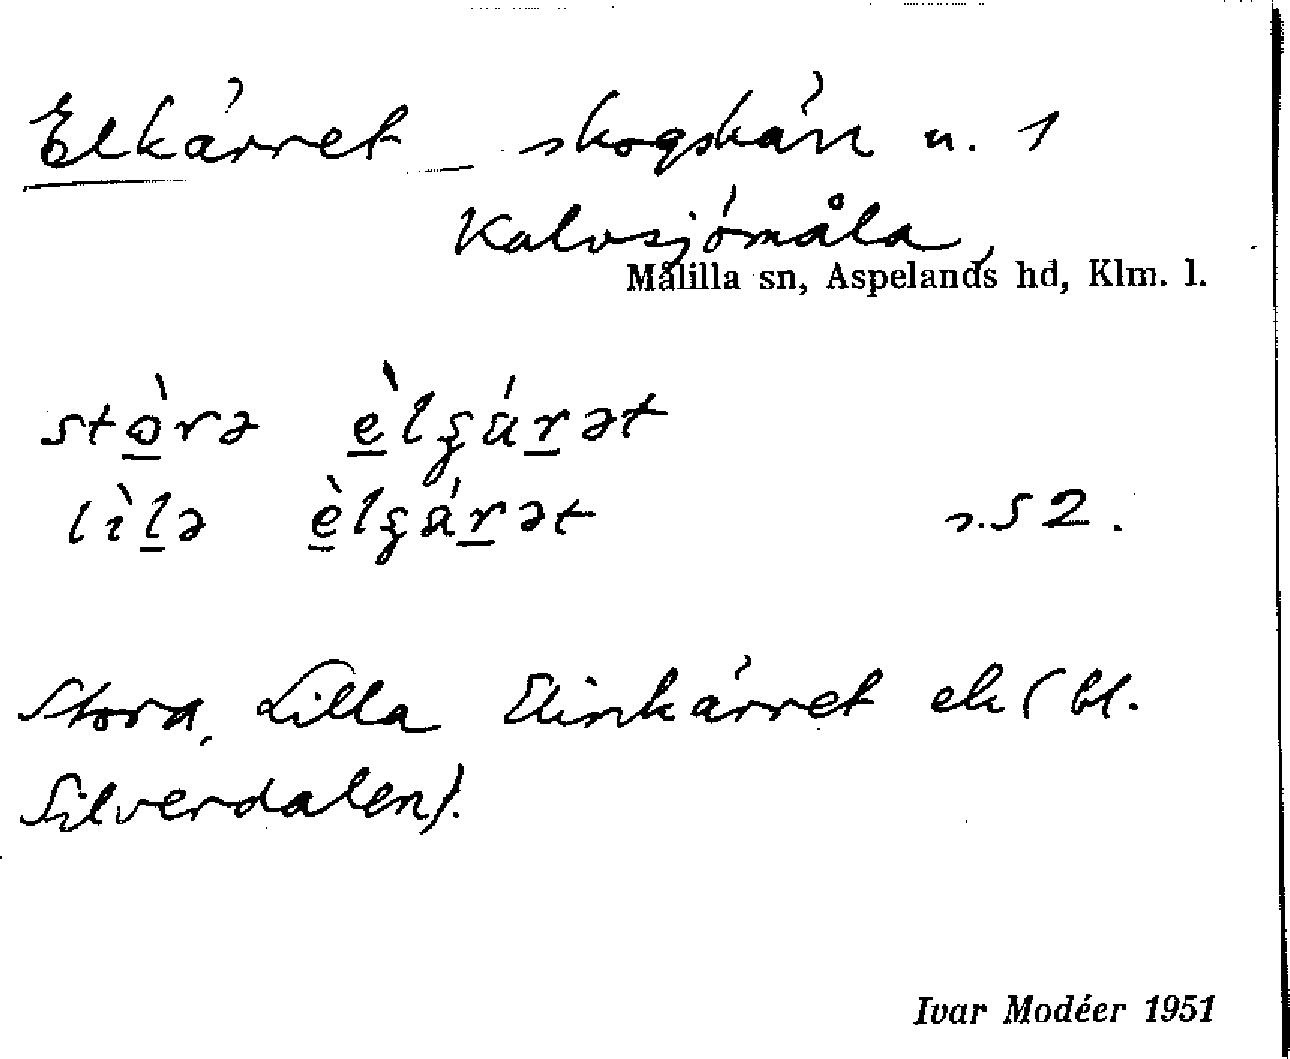 Elkärret – skogskärr n. 1
Kalvsjömåla,
Målilla sn, Aspelands hd, Klm. l.
stòrə èlgárət
lìlə èlgárət s. 52.
Stora, Lilla Elinkärret ek (bl.
Silverdalen).
Ivar Modéer 1951